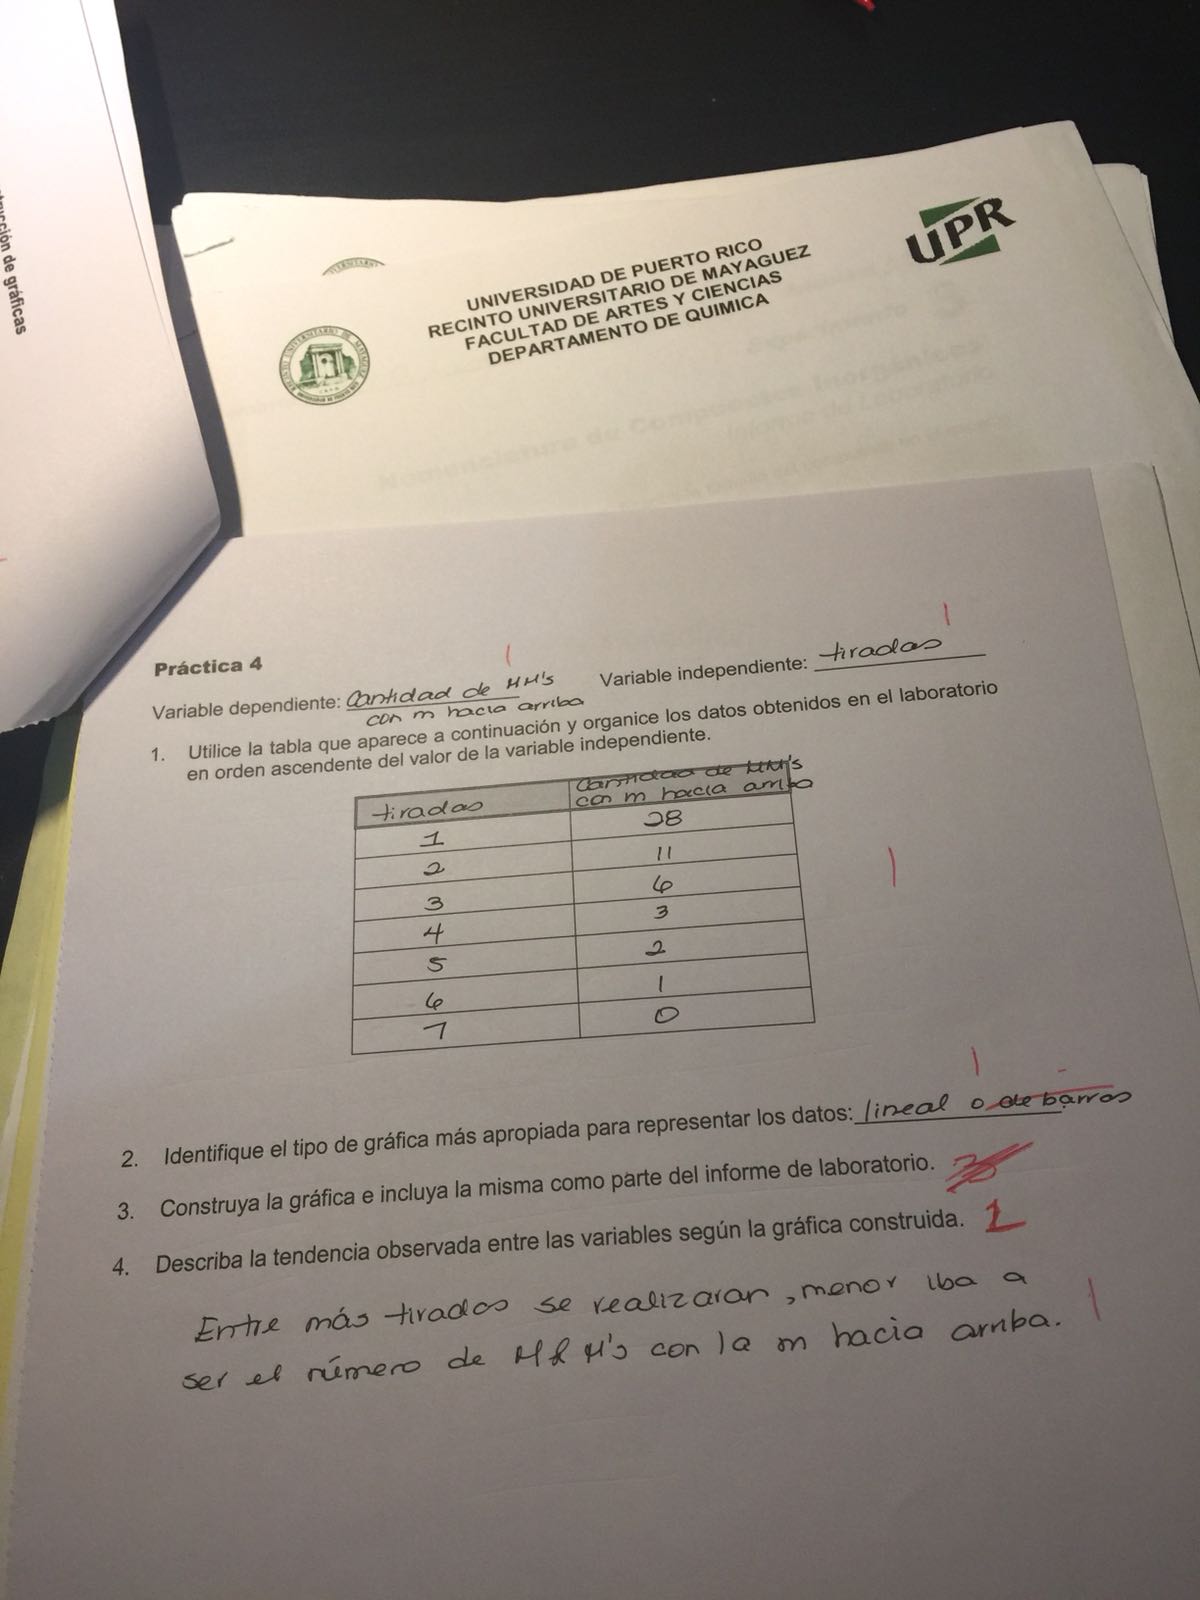 trucción de gráficas
UNIVERSIDAD DE PUERTO RICO
RECINTO UNIVERSITARIO DE MAYAGUEZ
FACULTAD DE ARTES Y CIENCIAS
DEPARTAMENTO DE QUIMICA
UPR
RECINTO UNIVERSITARIO DE MAYAGUEZ
Nomenclatura de Compuestos Inorgán
Informe de Laboratorio
Práctica 4
1
1
Variable dependiente: Cantidad de MM's Variable independiente: tiradas
con m hacia arriba
1. Utilice la tabla que aparece a continuación y organice los datos obtenidos en el laboratorio
en orden ascendente del valor de la variable independiente.
tiradas Cantidad de MM's
con m hacia arriba
1 28
2 11
3 6
4 3
5 2
6 1
7 0
1
1
2. Identifique el tipo de gráfica más apropiada para representar los datos: lineal o de barras
3. Construya la gráfica e incluya la misma como parte del informe de laboratorio.
4. Describa la tendencia observada entre las variables según la gráfica construida.
Entre más tiradas se realizaran, menor iba a
ser el número de M&M's con la m hacia arriba.
1